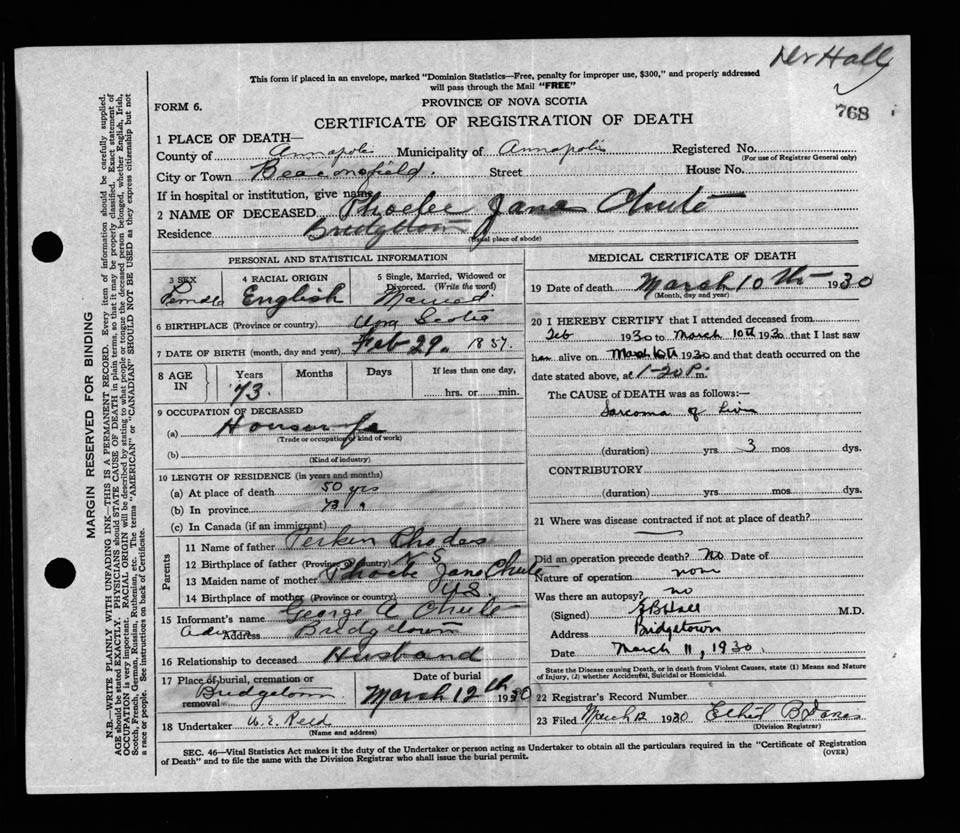 Dr Hall
This form if placed in an envelope, marked "Dominion Statistics—Free, penalty for improper use, $300," and properly addressed
will pass through the Mail "FREE"
768
FORM 6.
PROVINCE OF NOVA SCOTIA
CERTIFICATE OF REGISTRATION OF DEATH
1 PLACE OF DEATH—
County of Annapolis Municipality of Annapolis Registered No.
(For use of Registrar General only)
City or Town Beaconsfield. Street House No.
If in hospital or institution, give name
2 NAME OF DECEASED Phoebe Jane Chute
Residence Bridgetown
(Usual place of abode)
PERSONAL AND STATISTICAL INFORMATION
3 SEX Female
4 RACIAL ORIGIN English
5 Single, Married, Widowed or Divorced. (Write the word) Married.
6 BIRTHPLACE (Province or country) Nova Scotia
7 DATE OF BIRTH (month, day and year) Feb 29. 1857.
8 AGE IN Years 73. Months Days If less than one day, hrs. or min.
9 OCCUPATION OF DECEASED
(a) Housewife
(Trade or occupation or kind of work)
(b)
(Kind of industry)
10 LENGTH OF RESIDENCE (in years and months)
(a) At place of death 50 yrs
(b) In province 73 "
(c) In Canada (if an immigrant)
Parents
11 Name of father Perkin Rhodes
12 Birthplace of father (Province or country) N S
13 Maiden name of mother Phoebe Jane Chute
14 Birthplace of mother (Province or country) N S
15 Informant's name George A Chute
Address Bridgetown
16 Relationship to deceased Husband
17 Place of burial, cremation or removal Bridgetown
Date of burial March 12th 1930
18 Undertaker W. E. Reed
(Name and address)
MEDICAL CERTIFICATE OF DEATH
19 Date of death March 10th 1930
(Month, day and year)
20 I HEREBY CERTIFY that I attended deceased from
Feb 1930 to March 10th 1930 that I last saw
her alive on March 10th 1930 and that death occurred on the
date stated above, at 1-20 P.m.
The CAUSE OF DEATH was as follows:—
Sarcoma of Liver
(duration) yrs 3 mos dys.
CONTRIBUTORY
(duration) yrs mos dys.
21 Where was disease contracted if not at place of death?
Did an operation precede death? No Date of
Nature of operation none
Was there an autopsy? no
(Signed) Hall M.D.
Address Bridgetown
Date March 11, 1930.
State the Disease causing Death, or in death from Violent Causes, state (1) Means and Nature
of Injury, (2) whether Accidental, Suicidal or Homicidal.
22 Registrar's Record Number
23 Filed March 12 1930 Ethel
(Division Registrar)
SEC. 46—Vital Statistics Act makes it the duty of the Undertaker or person acting as Undertaker to obtain all the particulars required in the "Certificate of Registration
of Death" and to file the same with the Division Registrar who shall issue the burial permit.
(OVER)
MARGIN RESERVED FOR BINDING
N.B.—WRITE PLAINLY WITH UNFADING INK—THIS IS A PERMANENT RECORD. Every item of information should be carefully supplied.
AGE should be stated EXACTLY. PHYSICIANS should STATE CAUSE OF DEATH in plain terms, so that it may be properly classified. Exact statement of
OCCUPATION is very important. RACIAL ORIGIN will be described by stating to what people or tongue the deceased person belonged, whether English, Irish,
Scotch, French, German, Russian, Ruthenian, etc. The terms "AMERICAN" or "CANADIAN" SHOULD NOT BE USED as they express citizenship but not
a race or people. See instructions on back of Certificate.